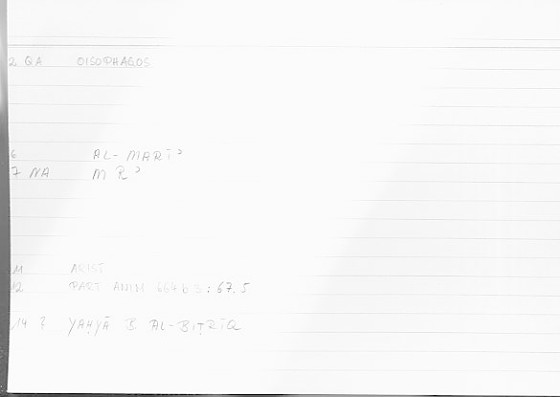 2 QA OISOPHAGOS
6 AL-MARĪʾ
7 NA MRʾ
11 ARIST
12 PART ANIM 664 b 3: 67.5
14 ? YAḤYĀ B AL-BIṬRĪQ